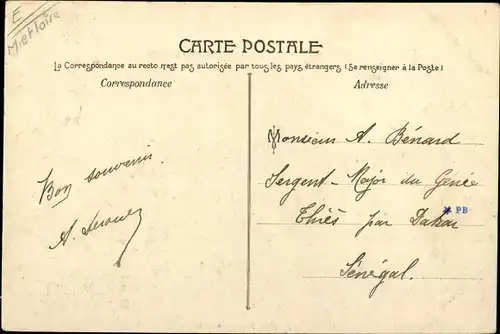 E
M. et Loire
CARTE POSTALE
La Correspondance au recto n'est pas autorisée par tous les pays étrangers (Se renseigner à la Poste)
Correspondance
Adresse
Monsieur A. Bénard
Sergent-Major du Génie
Thiès par Dakar
PB
Sénégal.
Bon souvenir.
A.